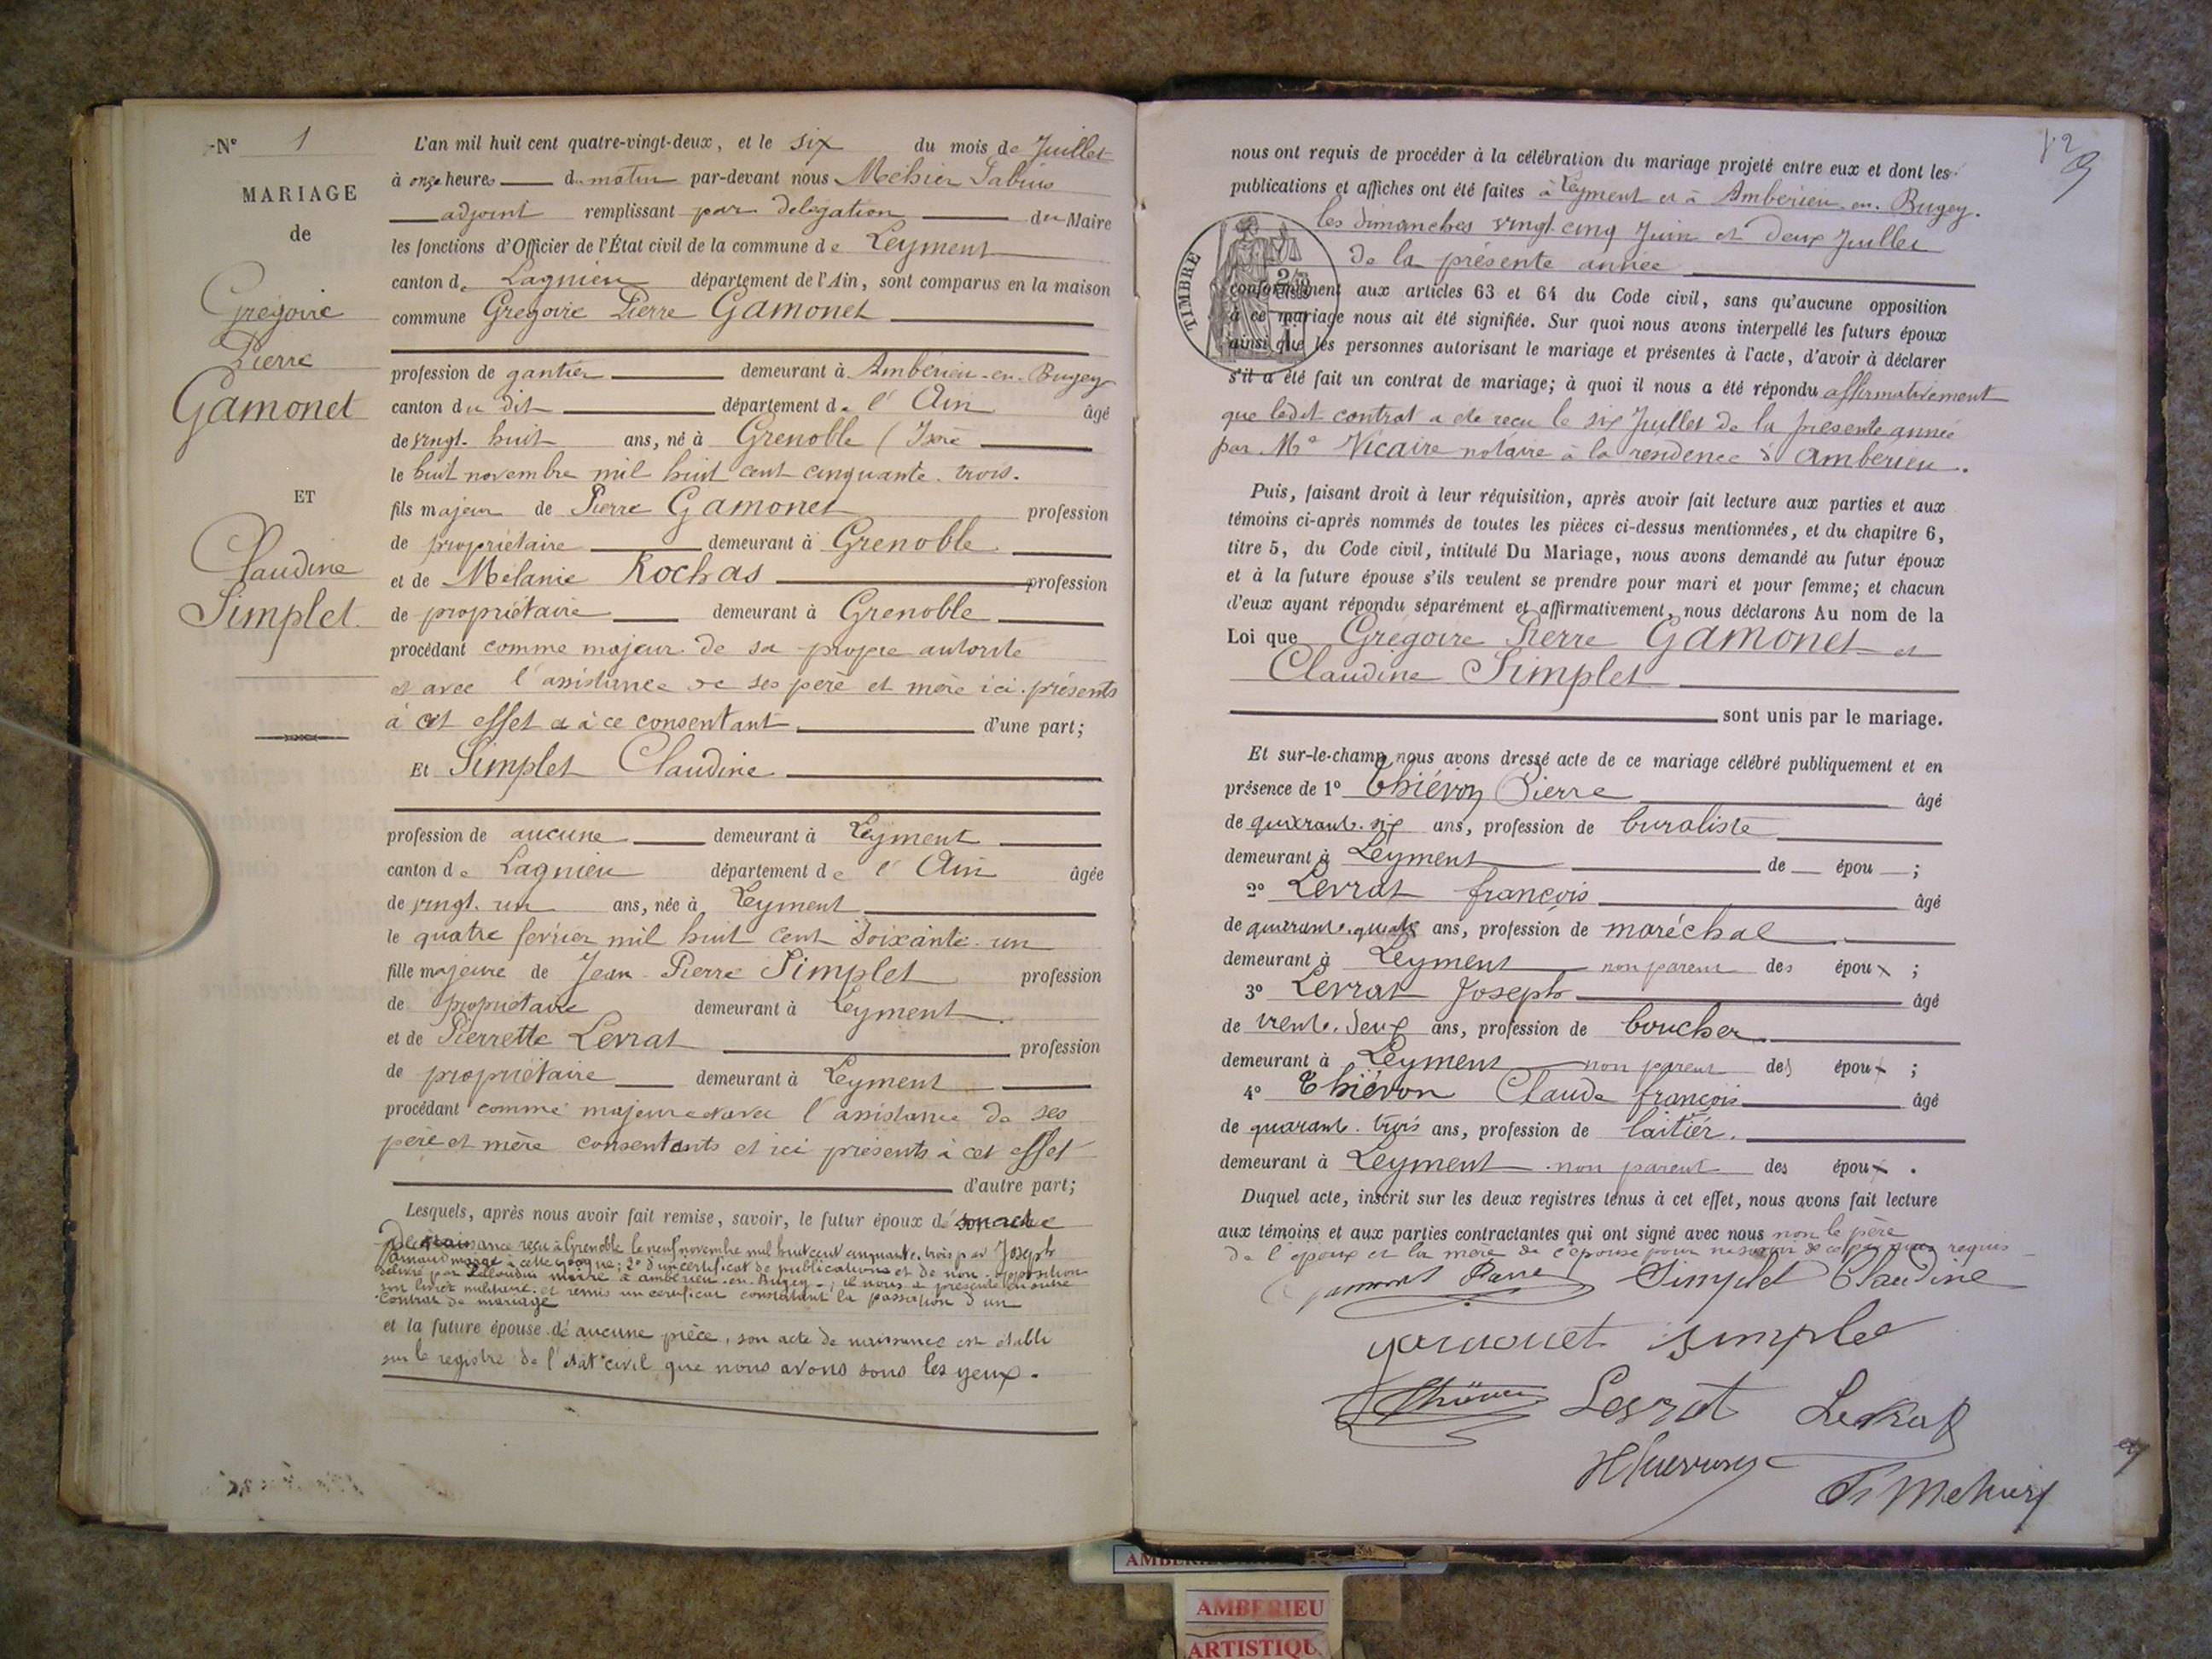 N° 1
MARIAGE
de
Grégoire
Pierre
Gamonet
ET
Claudine
Simplet.
L'an mil huit cent quatre-vingt-deux, et le six du mois de Juillet
à onze heures du matin par-devant nous Méhier Fabius
adjoint remplissant par délégation du Maire
les fonctions d'Officier de l'État civil de la commune de Leyment
canton de Lagnieu département de l'Ain, sont comparus en la maison
commune Gregoire Pierre Gamonet
profession de gantier demeurant à Ambérieu-en-Bugey
canton du dit département de l'Ain âgé
de vingt-huit ans, né à Grenoble (Isère
le huit novembre mil huit cent cinquante-trois.
fils majeur de Pierre Gamonet profession
de propriétaire demeurant à Grenoble
et de Mélanie Rochas profession
de propriétaire demeurant à Grenoble
procédant comme majeur de sa propre autorité
et avec l'assistance de ses père et mère ici présents
à cet effet et à ce consentant d'une part;
Et Simplet Claudine
profession de aucune demeurant à Leyment
canton de Lagnieu département de l'Ain âgée
de vingt-un ans, née à Leyment
le quatre février mil huit cent soixante-un
fille majeure de Jean-Pierre Simplet profession
de propriétaire demeurant à Leyment.
et de Pierrette Levrat profession
de propriétaire demeurant à Leyment
procédant comme majeure et avec l'assistance de ses
père et mère consentants et ici présents à cet effet
d'autre part;
Lesquels, après nous avoir fait remise, savoir, le futur époux dé son acte
de naissance reçu à Grenoble le neuf novembre mil huit cent cinquante-trois par Joseph
Arnaud maire à cette époque; 2° d'un certificat de publications et de non-opposition
délivré par maire à Ambérieu-en-Bugey; il nous a présenté en outre
son livret militaire et remis un certificat constatant la passation d'un
contrat de mariage
et la future épouse dé aucune pièce, son acte de naissance est établi
sur le registre de l'état civil que nous avons sous les yeux.
nous ont requis de procéder à la célébration du mariage projeté entre eux et dont les
publications et affiches ont été faites à Leyment et à Ambérieu-en-Bugey.
les dimanches vingt-cinq Juin et deux Juillet
de la présente année
TIMBRE
conformément aux articles 63 et 64 du Code civil, sans qu'aucune opposition
à ce mariage nous ait été signifiée. Sur quoi nous avons interpellé les futurs époux
ainsi que les personnes autorisant le mariage et présentes à l'acte, d'avoir à déclarer
s'il a été fait un contrat de mariage; à quoi il nous a été répondu affirmativement
que ledit contrat a été reçu le six Juillet de la présente année
par Me Vicaire notaire à la résidence d'Ambérieu.
Puis, faisant droit à leur réquisition, après avoir fait lecture aux parties et aux
témoins ci-après nommés de toutes les pièces ci-dessus mentionnées, et du chapitre 6,
titre 5, du Code civil, intitulé Du Mariage, nous avons demandé au futur époux
et à la future épouse s'ils veulent se prendre pour mari et pour femme; et chacun
d'eux ayant répondu séparément et affirmativement, nous déclarons Au nom de la
Loi que Grégoire Pierre Gamonet et
Claudine Simplet
sont unis par le mariage.
Et sur-le-champ nous avons dressé acte de ce mariage célébré publiquement et en
présence de 1° Thiévon Pierre âgé
de quarante-six ans, profession de buraliste
demeurant à Leyment de épou ;
2° Levrat françois âgé
de quarante-quatre ans, profession de maréchal
demeurant à Leyment non parent des époux ;
3° Levrat Joseph âgé
de trente-deux ans, profession de boucher
demeurant à Leyment non parent des époux ;
4° Thiévon Claude françois âgé
de quarante-trois ans, profession de laitier.
demeurant à Leyment non parent des époux .
Duquel acte, inscrit sur les deux registres tenus à cet effet, nous avons fait lecture
aux témoins et aux parties contractantes qui ont signé avec nous non le père
de l'époux et la mère de l'épouse pour ne savoir de ce requis
Gamonet Pierre Simplet Claudine
gamonet simplet
Levrat Levrat
AMBERIEU
ARTISTIQU